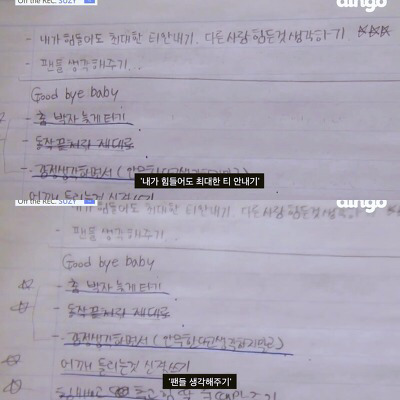 Off the REC. SUZY
dingo
- 내가 힘들어도 최대한 티안내기. 다른사람 힘든것 생각하기 ☆☆☆
- 팬들 생각해주기...
Good bye baby
- 춤 박자 늦게 타기
- 동작 끝처리 제대로
- 감정생각하면서 (안무한다고생각하지말고)
'내가 힘들어도 최대한 티 안내기'
어깨 들리는것 신경쓰기
Off the REC. SUZY
dingo
내가 힘들어도 최대한 티안내기. 다른사람 힘든것 생각하기
- 팬들 생각해주기...
Good bye baby
☆ - 춤 박자 늦게 타기
☆ - 동작 끝처리 제대로
- 감정생각하면서 (안무한다고생각하지말고)
☆ 어깨 들리는것 신경쓰기
'팬들 생각해주기'